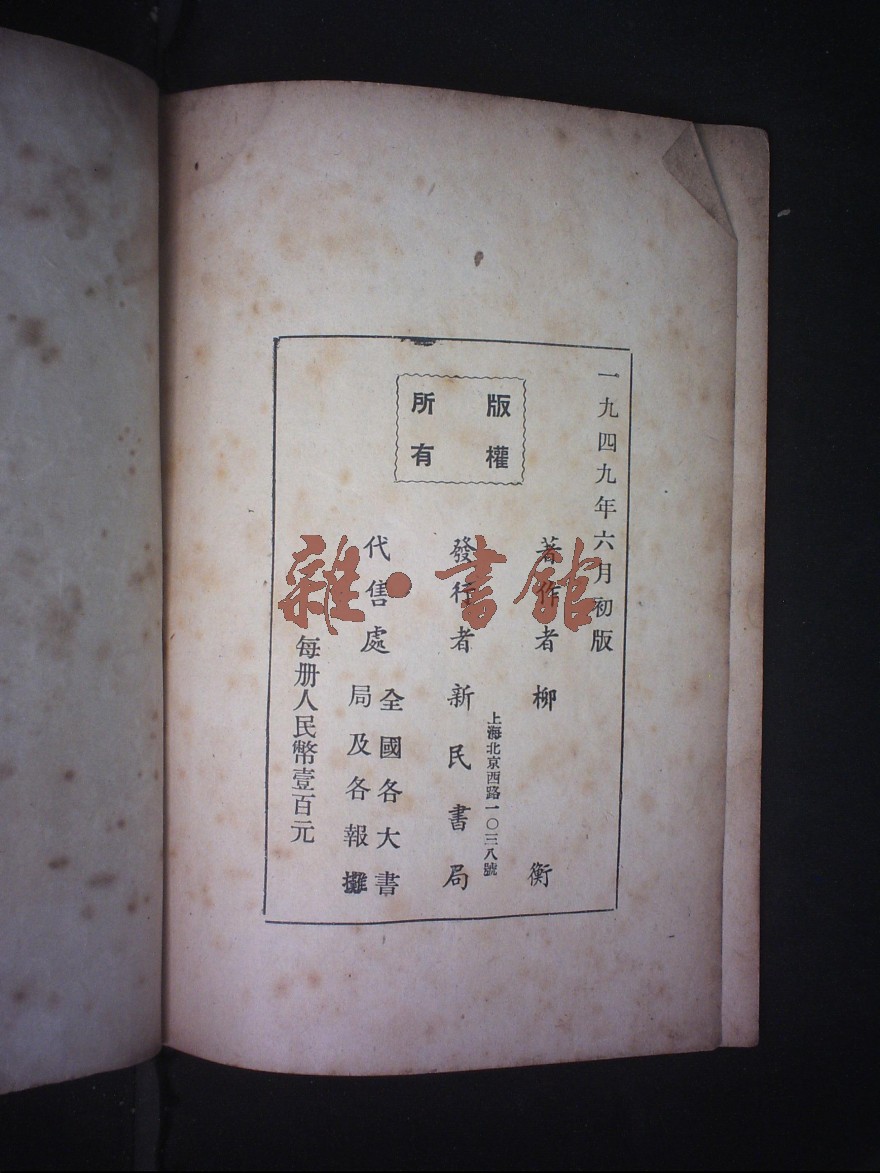 一九四九年六月初版
版權
所有
著作者 柳衡
上海北京西路一〇三八號
發行者 新民書局
代售處 全國各大書
局及各報攤
每册人民幣壹百元
雜·書館